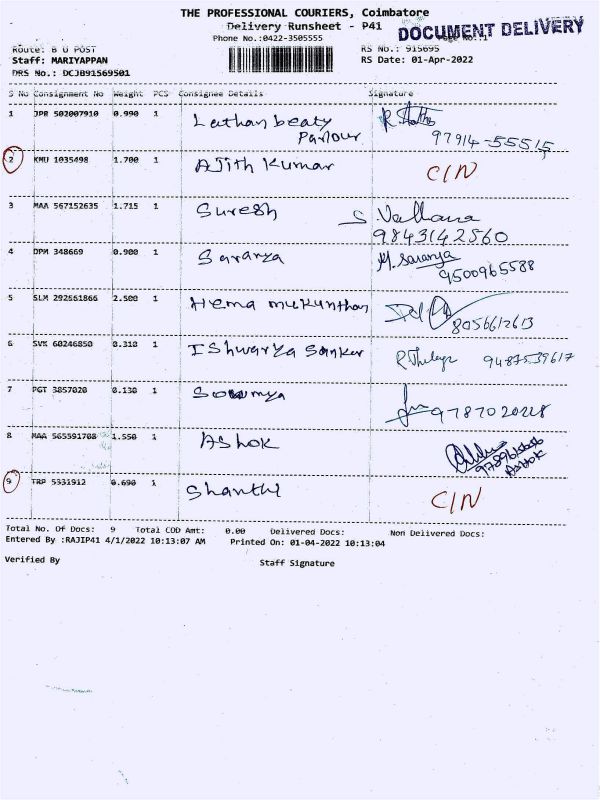 THE PROFESSIONAL COURIERS, Coimbatore
Delivery Runsheet - P41
DOCUMENT DELIVERY
Phone No.:0422-3505555
Route: B U POST
RS No.: 915695
Staff: MARIYAPPAN
RS Date: 01-Apr-2022
DRS No.: DCJB91569501
S No Consignment No Weight PCS Consignee Details Signature
1 JPR 502007910 0.990 1 Lathan beaty
Parlour
97914-55515
2 KMU 1035498 1.700 1 Ajith Kumar C/N
3 MAA 567152635 1.715 1 Suresh S. Vathana
9843142560
4 DPM 348669 0.900 1 Saranya M. Saranya
9500965588
5 SLM 292661866 2.500 1 Hema mukunthan
8056612613
6 SVK 60246850 0.310 1 Ishwarya Sanker 9487539617
7 PGT 3857020 0.130 1 Sowmya 9787020228
8 MAA 565591708 1.550 1 Ashok
Ashok
9 TRP 5331912 0.690 1 Shanthi C/N
Total No. Of Docs: 9 Total COD Amt: 0.00 Delivered Docs: Non Delivered Docs:
Entered By :RAJIP41 4/1/2022 10:13:07 AM Printed On: 01-04-2022 10:13:04
Verified By
Staff Signature